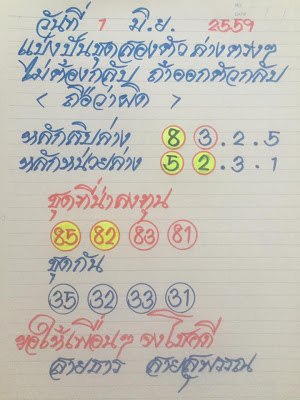 วันที่ 1 มิ.ย. 2559
แบ่งปันชุดสองตัว ล่างตรงๆ
ไม่ต้องกลับ ถ้าออกตัวกลับ
< ถือว่าผิด >
หลักสิบล่าง 8 3 . 2 . 5
หลักหน่วยล่าง 5 2 . 3 . 1
ชุดที่น่าลงทุน
85 82 83 81
ชุดกัน
35 32 33 31
ขอให้เพื่อนๆ จงโชคดี
สายธาร สายสุพรรณ